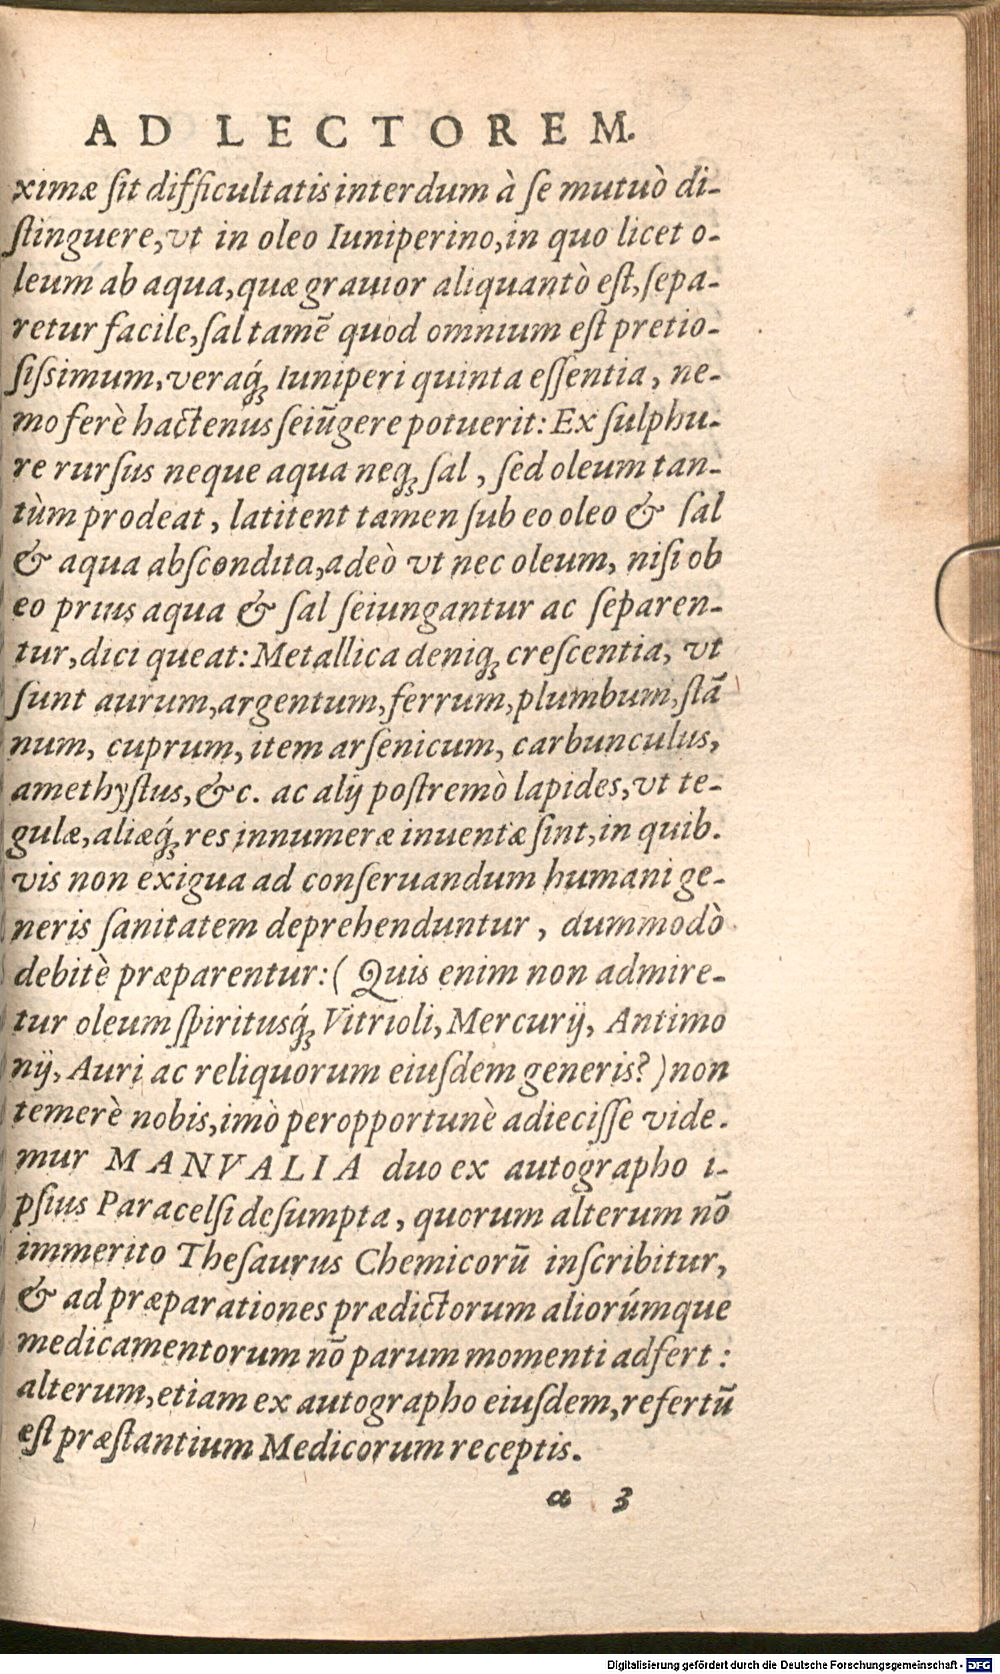 AD LECTOREM.
ximæ ſit difficultatis interdum à ſe mutuò di-
ſtinguere, vt in oleo Iuniperino, in quo licet o-
leum ab aqua, quæ grauior aliquantò eſt, ſepa-
retur facile, ſal tamē quod omnium eſt pretio-
ſiſsimum, veraq́ꝫ Iuniperi quinta eſſentia, ne-
mo ferè hactenus ſeiūgere potuerit: Ex ſulphu-
re rurſus neque aqua neqꝫ ſal, ſed oleum tan-
tùm prodeat, latitent tamen ſub eo oleo & ſal
& aqua abſcondita, adeò vt nec oleum, niſi ob
eo prius aqua & ſal ſeiungantur ac ſeparen-
tur, dici queat: Metallica deniqꝫ creſcentia, vt
ſunt aurum, argentum, ferrum, plumbum, ſtã
num, cuprum, item arſenicum, carbunculus,
amethyſtus, &c. ac alij poſtremò lapides, vt te-
gulæ, aliæq́ꝫ res innumeræ inuentæ ſint, in quib.
vis non exigua ad conſeruandum humani ge-
neris ſanitatem deprehenduntur, dummodò
debitè præparentur: (Quis enim non admire-
tur oleum ſpiritusq́ꝫ Vitrioli, Mercurij, Antimo
nij, Auri ac reliquorum eiuſdem generis?) non
temerè nobis, imò peropportunè adieciſſe vide.
mur MANVALIA duo ex autographo i-
pſius Paracelſi deſumpta, quorum alterum nõ
immerito Theſaurus Chemicorū inſcribitur,
& ad præparationes prædictorum aliorúmque
medicamentorum nõ parum momenti adfert:
alterum, etiam ex autographo eiuſdem, refertū
eſt præſtantium Medicorum receptis.
a 3
Digitalisierung gefördert durch die Deutsche Forschungsgemeinschaft - DFG